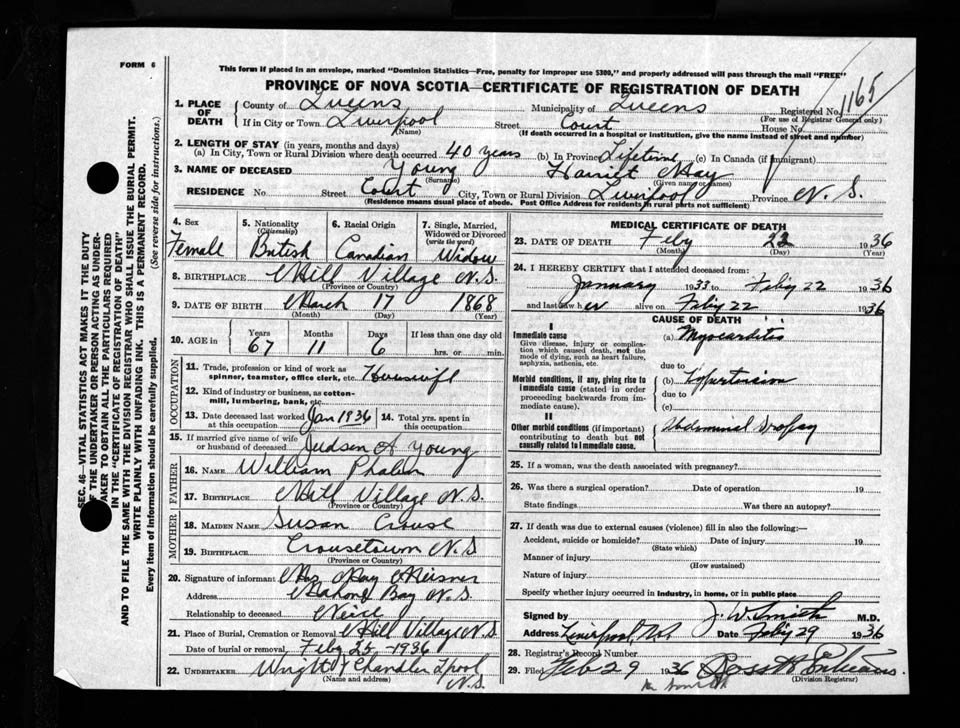 FORM 6
This form if placed in an envelope, marked "Dominion Statistics—Free, penalty for improper use $300," and properly addressed will pass through the mail "FREE"
PROVINCE OF NOVA SCOTIA—CERTIFICATE OF REGISTRATION OF DEATH
1. PLACE OF DEATH County of Queens Municipality of Queens Registered No. 1165
(For use of Registrar General only)
If in City or Town Liverpool Street Court House No.
(Name) (If death occurred in a hospital or institution, give the name instead of street and number)
2. LENGTH OF STAY (in years, months and days)
(a) In City, Town or Rural Division where death occurred 40 years (b) In Province Lifetime (c) In Canada (if immigrant)
3. NAME OF DECEASED Young Harriet May
(Surname) (Given name or names)
RESIDENCE No Street Court City, Town or Rural Division Liverpool Province N. S.
(Residence means usual place of abode. Post Office Address for residents in rural parts not sufficient)
4. Sex Female
5. Nationality (Citizenship) British
6. Racial Origin Canadian
7. Single, Married, Widowed or Divorced (write the word) Widow
8. BIRTHPLACE Mill Village N.S.
(Province or Country)
9. DATE OF BIRTH March 17 1868
(Month) (Day) (Year)
10. AGE in Years 67 Months 11 Days 6 If less than one day old hrs. or min.
OCCUPATION
11. Trade, profession or kind of work as spinner, teamster, office clerk, etc. Housewife
12. Kind of industry or business, as cotton-mill, lumbering, bank, etc.
13. Date deceased last worked at this occupation Jan 1936 14. Total yrs. spent in this occupation
15. If married give name of wife or husband of deceased Judson A Young
FATHER
16. NAME William Phalen
17. BIRTHPLACE Mill Village N.S.
(Province or Country)
MOTHER
18. MAIDEN NAME Susan Crouse
19. BIRTHPLACE Crousetown N.S
(Province or Country)
20. Signature of informant Mrs May Meisner
Address Mahone Bay N.S.
Relationship to deceased Neice
21. Place of Burial, Cremation or Removal Mill Village N.S.
Date of burial or removal Feby 25 - 1936
22. UNDERTAKER Wright & Chandler Lpool N.S.
(Name and address)
MEDICAL CERTIFICATE OF DEATH
23. DATE OF DEATH Feby 22 1936
(Month) (Day) (Year)
24. I HEREBY CERTIFY that I attended deceased from:
January 1933 to Feby 22 1936
and last saw her alive on Feby 22 1936
CAUSE OF DEATH
I
Immediate cause
Give disease, injury or complication which caused death, not the mode of dying, such as heart failure, asphyxia, asthenia, etc.
(a) Myocarditis
due to
Morbid conditions, if any, giving rise to immediate cause (stated in order proceeding backwards from immediate cause).
(b) Hypertension
due to
(c)
II
Other morbid conditions (if important) contributing to death but not causally related to immediate cause.
Abdominal Dropsy
25. If a woman, was the death associated with pregnancy?
26. Was there a surgical operation? Date of operation 19
State findings Was there an autopsy?
27. If death was due to external causes (violence) fill in also the following:—
Accident, suicide or homicide? Date of injury 19
(State which)
Manner of injury
(How sustained)
Nature of injury
Specify whether injury occurred in industry, in home, or in public place
Signed by J. W. Smith M.D.
Address Liverpool, N.S. Date Feby 29 1936
28. Registrar's Record Number
29. Filed Feb 29 1936
(Division Registrar)
SEC. 46—VITAL STATISTICS ACT MAKES IT THE DUTY
OF THE UNDERTAKER OR PERSON ACTING AS UNDER-
TAKER TO OBTAIN ALL THE PARTICULARS REQUIRED
IN THE "CERTIFICATE OF REGISTRATION OF DEATH"
AND TO FILE THE SAME WITH THE DIVISION REGISTRAR WHO SHALL ISSUE THE BURIAL PERMIT.
WRITE PLAINLY WITH UNFADING INK. THIS IS A PERMANENT RECORD.
Every item of information should be carefully supplied. (See reverse side for instructions.)